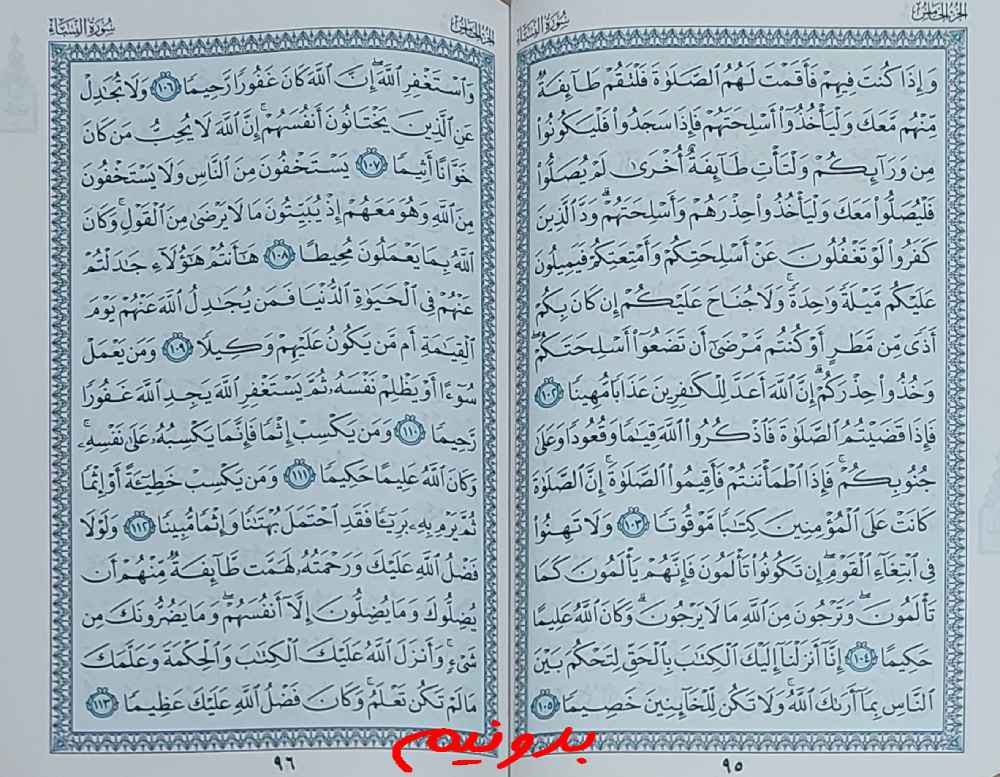 الجزء الخامس
سورة النساء
وَإِذَا كُنتَ فِيهِمْ فَأَقَمْتَ لَهُمُ ٱلصَّلَوٰةَ فَلْتَقُمْ طَآئِفَةٌ
مِّنْهُم مَّعَكَ وَلْيَأْخُذُوٓا۟ أَسْلِحَتَهُمْ فَإِذَا سَجَدُوا۟ فَلْيَكُونُوا۟
مِن وَرَآئِكُمْ وَلْتَأْتِ طَآئِفَةٌ أُخْرَىٰ لَمْ يُصَلُّوا۟
فَلْيُصَلُّوا۟ مَعَكَ وَلْيَأْخُذُوا۟ حِذْرَهُمْ وَأَسْلِحَتَهُمْ ۗ وَدَّ ٱلَّذِينَ
كَفَرُوا۟ لَوْ تَغْفُلُونَ عَنْ أَسْلِحَتِكُمْ وَأَمْتِعَتِكُمْ فَيَمِيلُونَ
عَلَيْكُم مَّيْلَةً وَٰحِدَةً ۚ وَلَا جُنَاحَ عَلَيْكُمْ إِن كَانَ بِكُمْ
أَذًى مِّن مَّطَرٍ أَوْ كُنتُم مَّرْضَىٰٓ أَن تَضَعُوٓا۟ أَسْلِحَتَكُمْ ۖ
وَخُذُوا۟ حِذْرَكُمْ ۗ إِنَّ ٱللَّهَ أَعَدَّ لِلْكَٰفِرِينَ عَذَابًا مُّهِينًا ١٠٢
فَإِذَا قَضَيْتُمُ ٱلصَّلَوٰةَ فَٱذْكُرُوا۟ ٱللَّهَ قِيَٰمًا وَقُعُودًا وَعَلَىٰ
جُنُوبِكُمْ ۚ فَإِذَا ٱطْمَأْنَنتُمْ فَأَقِيمُوا۟ ٱلصَّلَوٰةَ ۚ إِنَّ ٱلصَّلَوٰةَ
كَانَتْ عَلَى ٱلْمُؤْمِنِينَ كِتَٰبًا مَّوْقُوتًا ١٠٣ وَلَا تَهِنُوا۟
فِى ٱبْتِغَآءِ ٱلْقَوْمِ ۖ إِن تَكُونُوا۟ تَأْلَمُونَ فَإِنَّهُمْ يَأْلَمُونَ كَمَا
تَأْلَمُونَ ۖ وَتَرْجُونَ مِنَ ٱللَّهِ مَا لَا يَرْجُونَ ۗ وَكَانَ ٱللَّهُ عَلِيمًا
حَكِيمًا ١٠٤ إِنَّآ أَنزَلْنَآ إِلَيْكَ ٱلْكِتَٰبَ بِٱلْحَقِّ لِتَحْكُمَ بَيْنَ
ٱلنَّاسِ بِمَآ أَرَىٰكَ ٱللَّهُ ۚ وَلَا تَكُن لِّلْخَآئِنِينَ خَصِيمًا ١٠٥
٩٥
الجزء الخامس
سورة النساء
وَٱسْتَغْفِرِ ٱللَّهَ ۖ إِنَّ ٱللَّهَ كَانَ غَفُورًا رَّحِيمًا ١٠٦ وَلَا تُجَٰدِلْ
عَنِ ٱلَّذِينَ يَخْتَانُونَ أَنفُسَهُمْ ۚ إِنَّ ٱللَّهَ لَا يُحِبُّ مَن كَانَ
خَوَّانًا أَثِيمًا ١٠٧ يَسْتَخْفُونَ مِنَ ٱلنَّاسِ وَلَا يَسْتَخْفُونَ
مِنَ ٱللَّهِ وَهُوَ مَعَهُمْ إِذْ يُبَيِّتُونَ مَا لَا يَرْضَىٰ مِنَ ٱلْقَوْلِ ۚ وَكَانَ
ٱللَّهُ بِمَا يَعْمَلُونَ مُحِيطًا ١٠٨ هَٰٓأَنتُمْ هَٰٓؤُلَآءِ جَٰدَلْتُمْ
عَنْهُمْ فِى ٱلْحَيَوٰةِ ٱلدُّنْيَا فَمَن يُجَٰدِلُ ٱللَّهَ عَنْهُمْ يَوْمَ
ٱلْقِيَٰمَةِ أَم مَّن يَكُونُ عَلَيْهِمْ وَكِيلًا ١٠٩ وَمَن يَعْمَلْ
سُوٓءًا أَوْ يَظْلِمْ نَفْسَهُۥ ثُمَّ يَسْتَغْفِرِ ٱللَّهَ يَجِدِ ٱللَّهَ غَفُورًا
رَّحِيمًا ١١٠ وَمَن يَكْسِبْ إِثْمًا فَإِنَّمَا يَكْسِبُهُۥ عَلَىٰ نَفْسِهِۦ ۚ
وَكَانَ ٱللَّهُ عَلِيمًا حَكِيمًا ١١١ وَمَن يَكْسِبْ خَطِيٓـَٔةً أَوْ إِثْمًا
ثُمَّ يَرْمِ بِهِۦ بَرِيٓـًٔا فَقَدِ ٱحْتَمَلَ بُهْتَٰنًا وَإِثْمًا مُّبِينًا ١١٢ وَلَوْلَا
فَضْلُ ٱللَّهِ عَلَيْكَ وَرَحْمَتُهُۥ لَهَمَّت طَّآئِفَةٌ مِّنْهُمْ أَن
يُضِلُّوكَ وَمَا يُضِلُّونَ إِلَّآ أَنفُسَهُمْ ۖ وَمَا يَضُرُّونَكَ مِن
شَىْءٍ ۚ وَأَنزَلَ ٱللَّهُ عَلَيْكَ ٱلْكِتَٰبَ وَٱلْحِكْمَةَ وَعَلَّمَكَ
مَا لَمْ تَكُن تَعْلَمُ ۚ وَكَانَ فَضْلُ ٱللَّهِ عَلَيْكَ عَظِيمًا ١١٣
٩٦
بدونیم